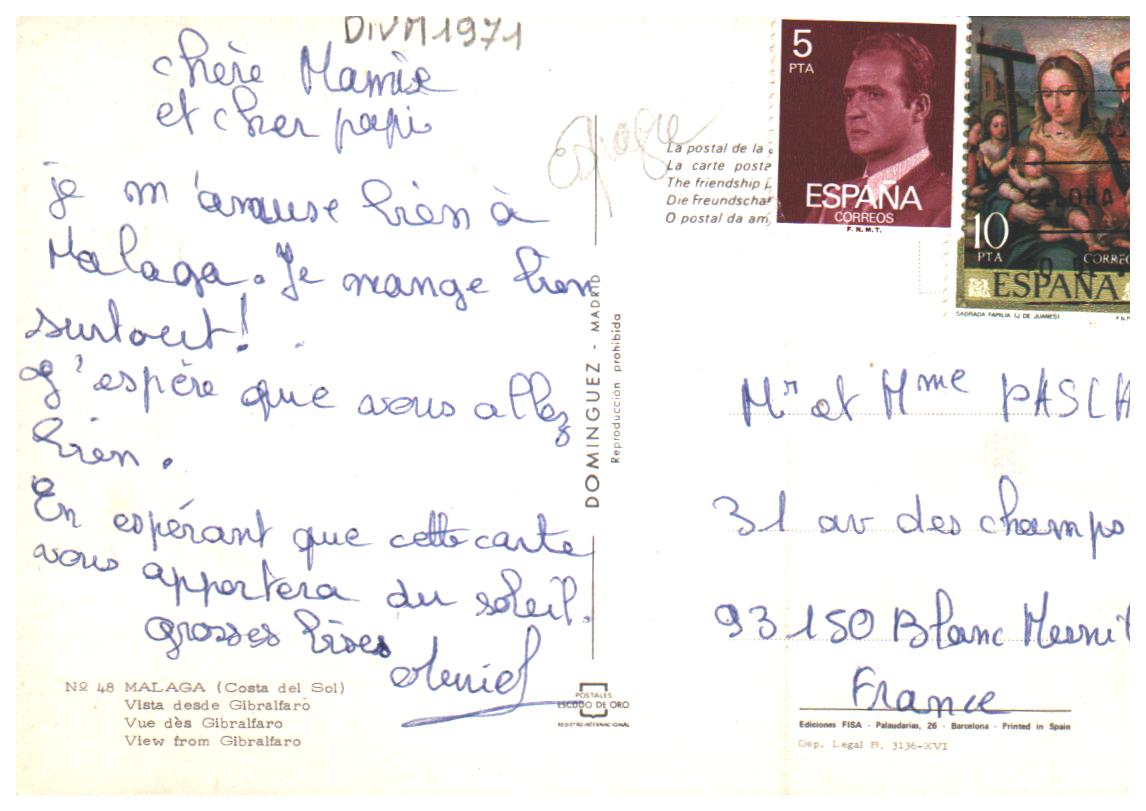 DIVM1971
chère Mamie
et cher papi
je m'amuse bien à
Malaga. Je mange bien
surtout!
J'espère que vous allez
bien.
En espérant que cette carte
vous apportera du soleil.
grosses bises
Nº 48 MALAGA (Costa del Sol)
Vista desde Gibralfaro
Vue dès Gibralfaro
View from Gibralfaro
DOMINGUEZ - MADRID
Reproducción prohibida
POSTALES
ESCUDO DE ORO
REGISTRO INTERNACIONAL
Espagne
La postal de la
La carte posta
The friendship
Die Freundschaf
O postal da am
5
PTA
ESPAÑA
CORREOS
F.N.M.T.
10
PTA
CORREO
ESPAÑA
SAGRADA FAMILIA (J DE JUANES)
Mr et Mme PASCH
31 av des champs
93150 Blanc Mesnil
France
Ediciones FISA - Palaudarias, 26 - Barcelona - Printed in Spain
Dep. Legal B. 3136-XVI